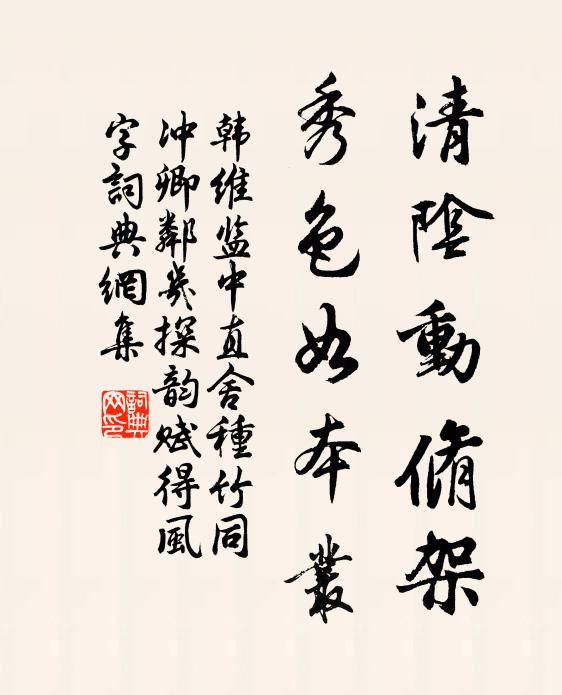 清陰動脩架
秀色如本叢
韩维监中直舍種竹同
冲卿鄰幾探韵赋得風
字詞典網集
詞典
网印